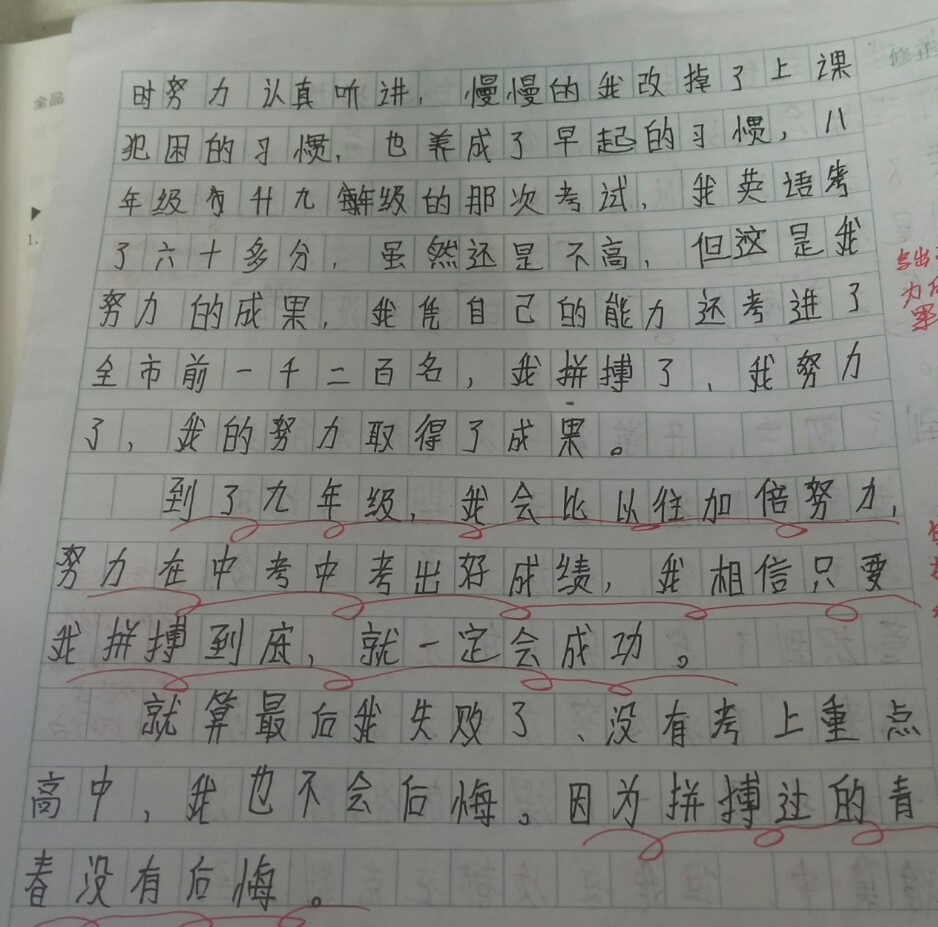 时努力认真听讲，慢慢的我改掉了上课
犯困的习惯，也养成了早起的习惯，八
年级升九年级的那次考试，我英语考
了六十多分，虽然还是不高，但这是我
努力的成果，我凭自己的能力还考进了
全市前一千二百名，我拼搏了，我努力
了，我的努力取得了成果。
到了九年级，我会比以往加倍努力，
努力在中考中考出好成绩，我相信只要
我拼搏到底，就一定会成功。
就算最后我失败了、没有考上重点
高中，我也不会后悔。因为拼搏过的青
春没有后悔。
全品
1.